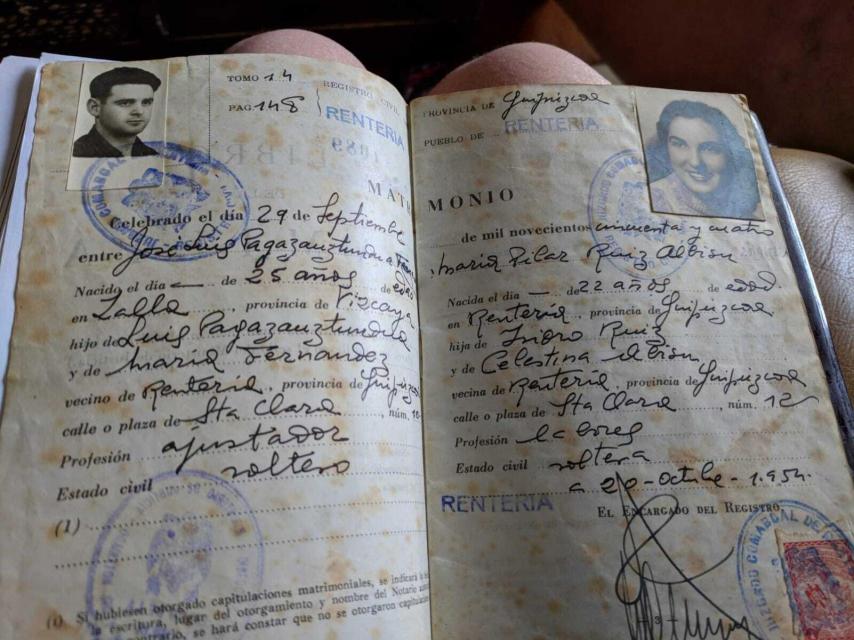 TOMO 14
REGISTRO CIVIL
PAG 148
RENTERIA
MAT
Celebrado el día 29 de Septiembre
entre José Luis Pagazaurtundua
Nacido el día — de 25 años de edad
en Zalla, provincia de Vizcaya
hijo de Luis Pagazaurtundua
y de Maria Fernandez
vecino de Renteria, provincia Guipuzcoa
calle o plaza de Sta Clara, núm. 12
Profesión ajustador
Estado civil soltero
(1)
(1) Si hubiesen otorgado capitulaciones matrimoniales, se indicará la
escritura, lugar del otorgamiento y nombre del Notario
contrario, se hará constar que no se otorgaron
PROVINCIA DE Guipuzcoa
PUEBLO DE RENTERIA
MONIO
de mil novecientos cincuenta y cuatro
Maria Pilar Ruiz Albion
Nacida el día — de 22 años de edad
en Renteria, provincia de Guipuzcoa
hija de Isidro Ruiz
y de Celestina Albion
vecina de Renteria, provincia de Guipuzcoa
calle o plaza de Sta Clara, núm. 12
Profesión labores
Estado civil soltera
a 20 - Octubre - 1.954.
RENTERIA
EL ENCARGADO DEL REGISTRO,
- 3 -
JUZGADO COMARCAL DE